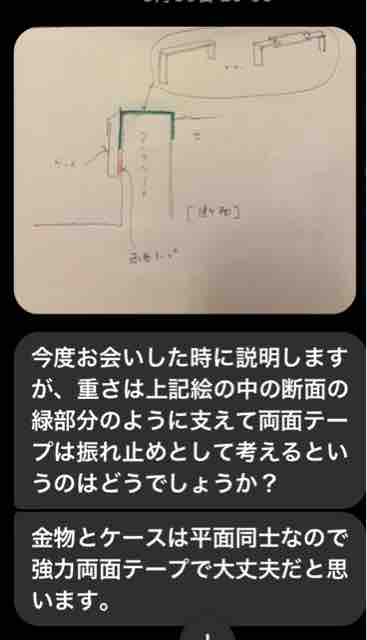 ケース
[断面]
両面テープ
今度お会いした時に説明します
が、重さは上記絵の中の断面の
緑部分のように支えて両面テー
プは振れ止めとして考えるとい
うのはどうでしょうか？
金物とケースは平面同士なので
強力両面テープで大丈夫だと思
います。